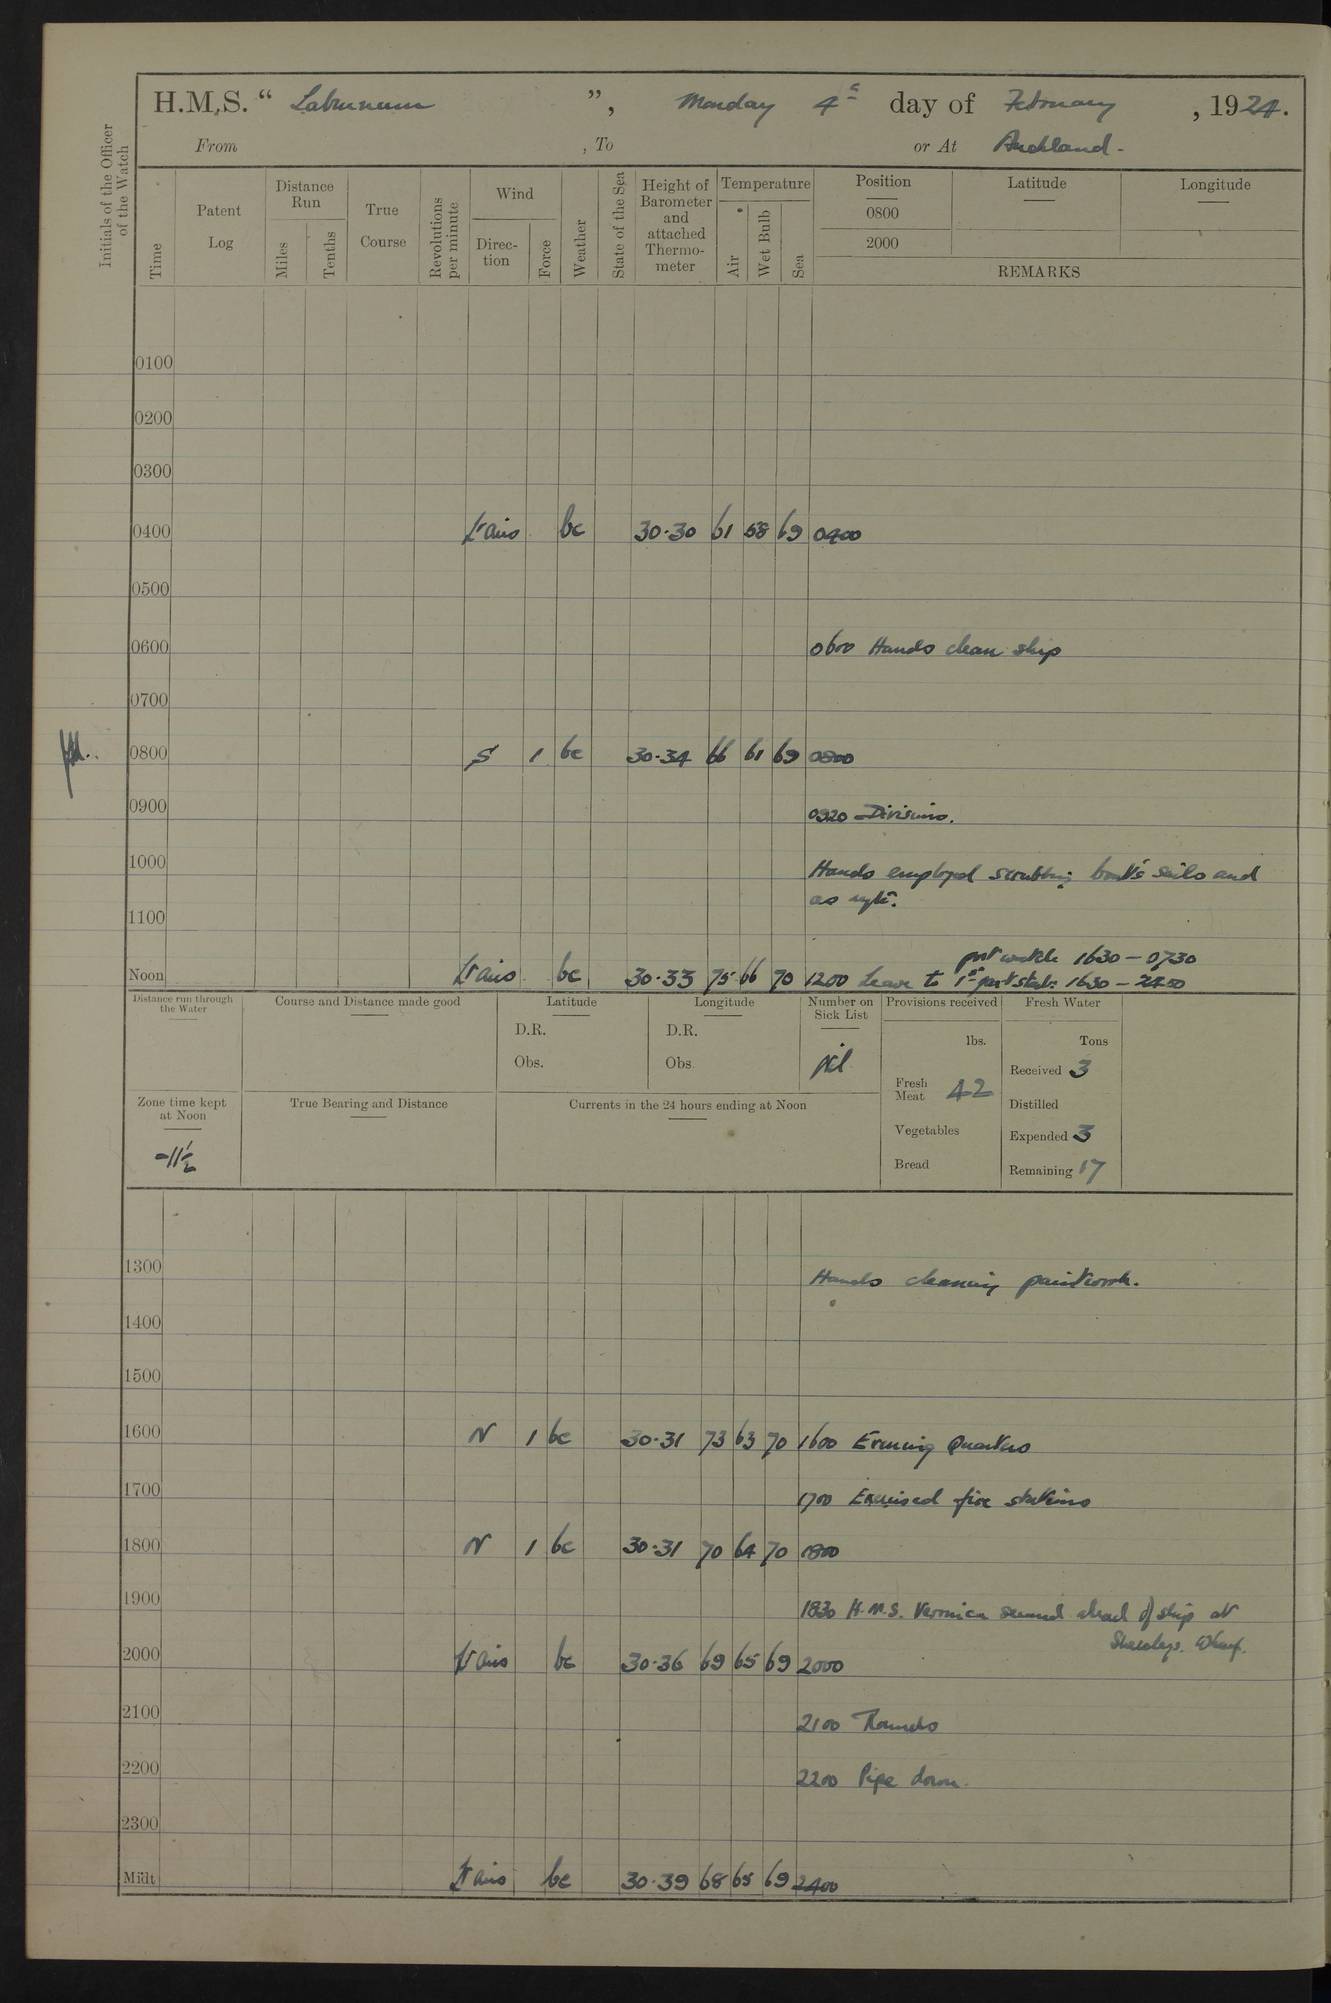 H.M.S. “ Laburnum ”, Monday 4th day of February , 1924.
From , To or At Auckland -
Initials of the Officer of the Watch
Time
Patent Log
Distance Run
Miles
Tenths
True Course
Revolutions per minute
Wind
Direc-tion
Force
Weather
State of the Sea
Height of Barometer and attached Thermo-meter
Temperature
Air
Wet Bulb
Sea
Position
0800
2000
Latitude
Longitude
REMARKS
0100
0200
0300
0400 Lt airs bc 30·30 61 58 69 0400
0500
0600 0600 Hands clean ship
0700
0800 S 1 bc 30·34 66 61 69 0800
0900 0920 Divisions.
1000 Hands employed scrubbing boat's sails and
as reqte.
1100
port watch 1630 - 0730
Noon Lt airs bc 30·33 75 66 70 1200 Leave to 1st part stabd: 1630 - 2400
Distance run through the Water
Course and Distance made good
Latitude
D.R.
Obs.
Longitude
D.R.
Obs
Number on Sick List
Nil
Provisions received
lbs.
Fresh Meat 42
Vegetables
Bread
Fresh Water
Tons
Received 3
Distilled
Expended 3
Remaining 17
Zone time kept at Noon
-11½
True Bearing and Distance
Currents in the 24 hours ending at Noon
1300 Hands cleaning paintwork.
1400
1500
1600 N 1 bc 30·31 73 63 70 1600 Evening Quarters
1700 1700 Exercised fire stations
1800 N 1 bc 30·31 70 64 70 1800
1900 1830 H.M.S. Veronica secured ahead of ship at
Wharf.
2000 Lt airs bc 30·36 69 65 69 2000
2100 2100 Rounds
2200 2200 Pipe down.
2300
Midt Lt airs bc 30·39 68 65 69 2400